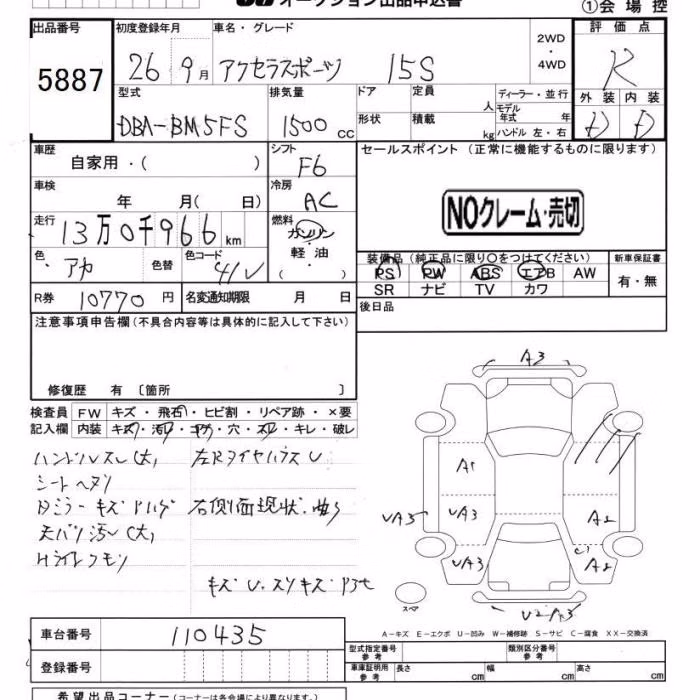 オークション出品申込書
①会場控
出品番号 初度登録年月 車名・グレード 2WD・4WD 評価点
5887 26年9月 アクセラスポーツ 15S R
型式 排気量 ドア 定員 人 ディーラー・並行 外装 内装
DBA-BM5FS 1500cc 形状 積載 kg モデル年式 年 ハンドル 左・右 D D
車歴 自家用・( ) シフト F6 セールスポイント (正常に機能するものに限ります)
車検 年 月( 日) 冷房 AC
NOクレーム・売切
走行 13万0千966km 燃料 ガソリン・軽油・( )
色 アカ 色替 色コード 41V 装備品(純正品に限り○をつけてください) 新車保証書
PS PW ABS エアB AW 有・無
R券 10770円 名変通知期限 月 日 SR ナビ TV カワ
注意事項申告欄(不具合内容等は具体的に記入して下さい) 後日品
修復歴 有 〔箇所 〕
検査員 FW キズ・飛石・ヒビ割・リペア跡・×要
記入欄 内装 キズ・汚れ・コゲ・穴・スレ・キレ・破レ
ハンドルスレ(大)
シートヘタリ
天バリ汚レ(大)
Hライトクモリ
右側面現状.曲り
A3
A1
VA3 VA3 A2
VA3 A2
スペア
A-キズ E-エクボ U-凹み W-補修跡 S-サビ C-腐食 XX-交換済
車台番号 110435 型式指定番号 参考 類別区分番号 参考
登録番号 車庫証明用 参考 長さ cm 幅 cm 高さ cm
希望出品コーナー(コーナーは各会場により異なります。)